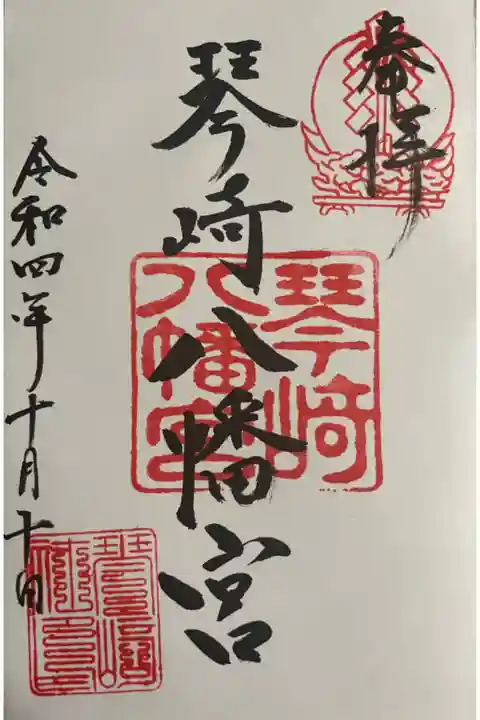 奉拝
琴崎八幡宮
琴崎
八幡宮
令和四年十月十日